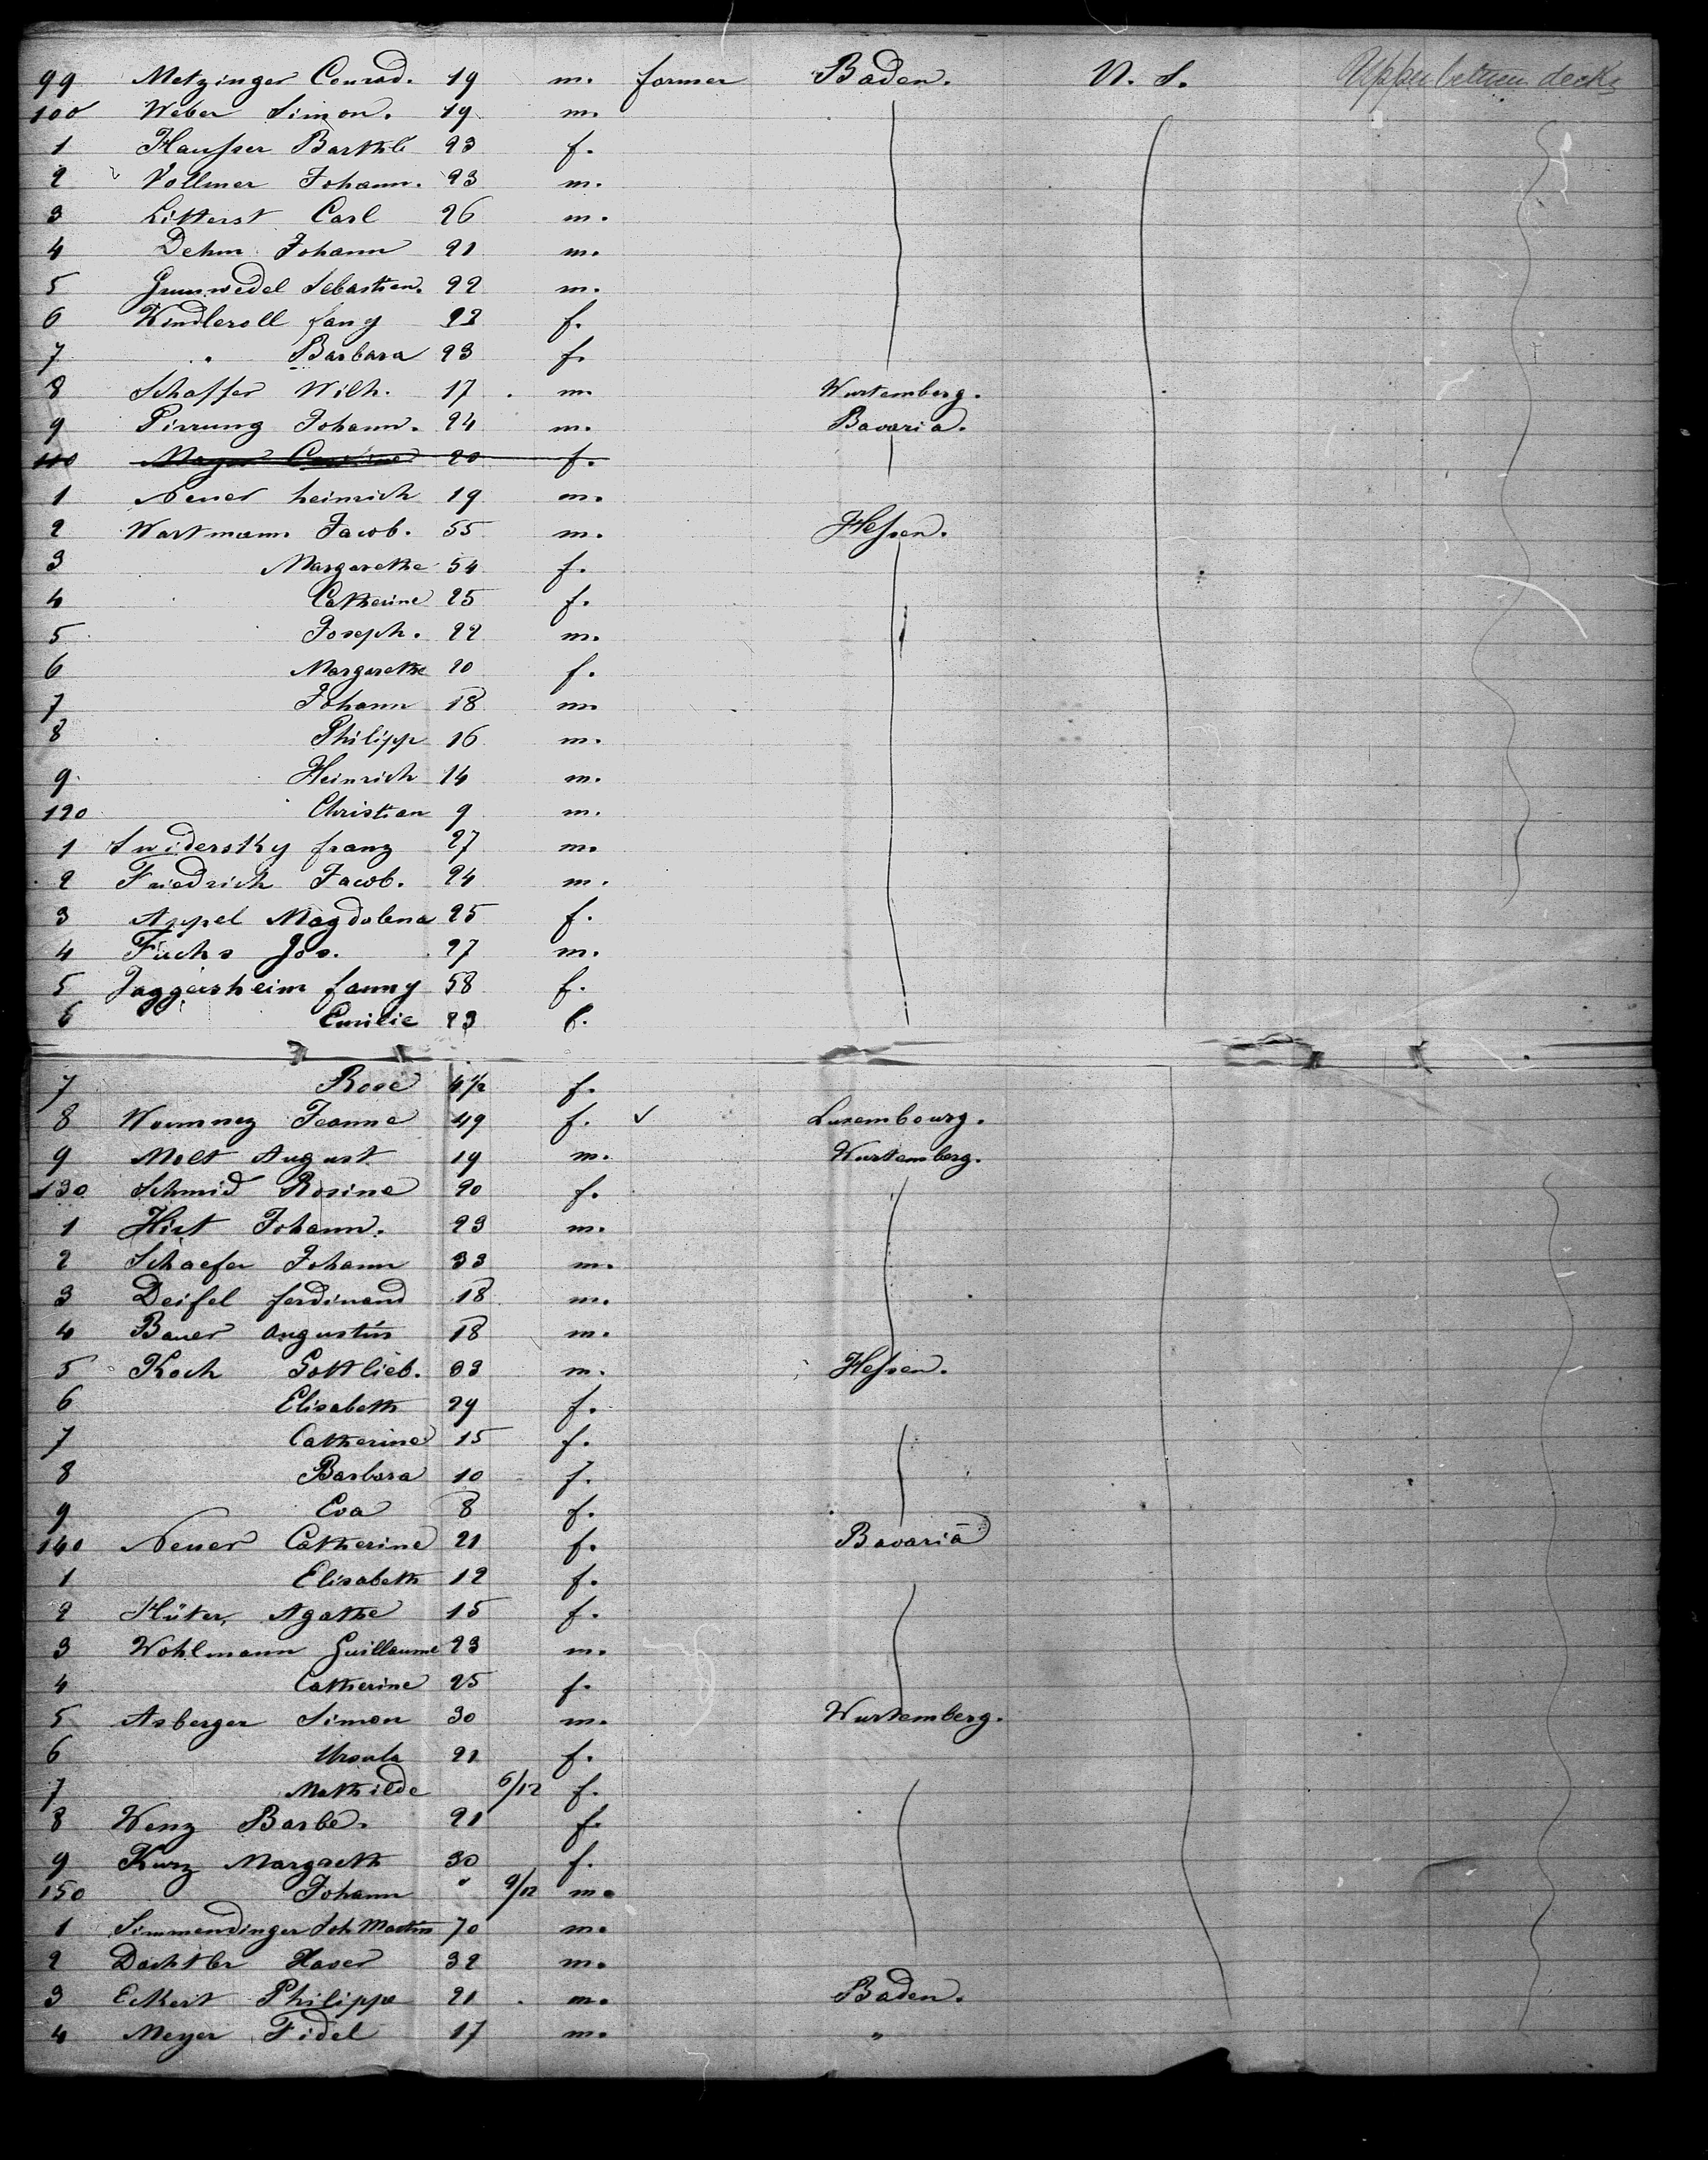 99 Metzinger Conrad. 19 m. farmer Baden. N. S. Upper between decks
100 Weber Simon. 19 m.
1 Hausser Barthle 23 f.
2 Vollmer Johann. 23 m.
3 Litterst Carl 26 m.
4 Dehm Johann 21 m.
5 Grunwedel Sebastian. 22 m.
6 Kindleroll fany 22 f.
7 " Barbara 23 f.
8 Schaffer Wilh. 17 m. Wurtemberg.
9 Pirrung Johann. 24 m. Bavaria.
110 Mayer Caroline 20 f.
1 Neuer heinrich 19 m.
2 Wartmann Jacob. 55 m. Hessen.
3 Margarethe 54 f.
4 Catherine 25 f.
5 Joseph. 22 m.
6 Margarethe 20 f.
7 Johann 18 m.
8 Philipp 16 m.
9 Heinrich 14 m.
120 Christian 9 m.
1 Swidersky franz 27 m.
2 Friedrich Jacob. 24 m.
3 Appel Magdalena 25 f.
4 Fuchs Jos. 27 m.
5 Jaggersheim fanny 58 f.
6 Emilie 23 f.
7 Rose 4½ f.
8 Jeanne 49 f. Luxembourg.
9 Molt August 19 m. Wurtemberg.
130 Schmid Rosine 20 f.
1 Hirt Johann. 23 m.
2 Schaefer Johann 33 m.
3 Deifel ferdinand 18 m.
4 Bauer Augustin 18 m.
5 Koch Gottlieb. 33 m. Hessen.
6 Elisabeth 29 f.
7 Catherine 15 f.
8 Barbara 10 f.
9 Eva 8 f.
140 Neuer Catherine 21 f. Bavaria
1 Elisabeth 12 f.
2 Hüter, Agathe 15 f.
3 Wohlmann Guillaume 23 m.
4 Catherine 25 f.
5 Asberger Simon 30 m. Wurtemberg.
6 Ursula 21 f.
7 Mathilde 6/12 f.
8 Wenz Barbe. 21 f.
9 Kurz Margaeth 30 f.
150 Johann " 9/12 m.
1 Simmendinger Joh Martin 70 m.
2 Dachtler Xaver 32 m.
3 Eckert Philippe 21 m. Baden.
4 Meyer Fidel 17 m. "